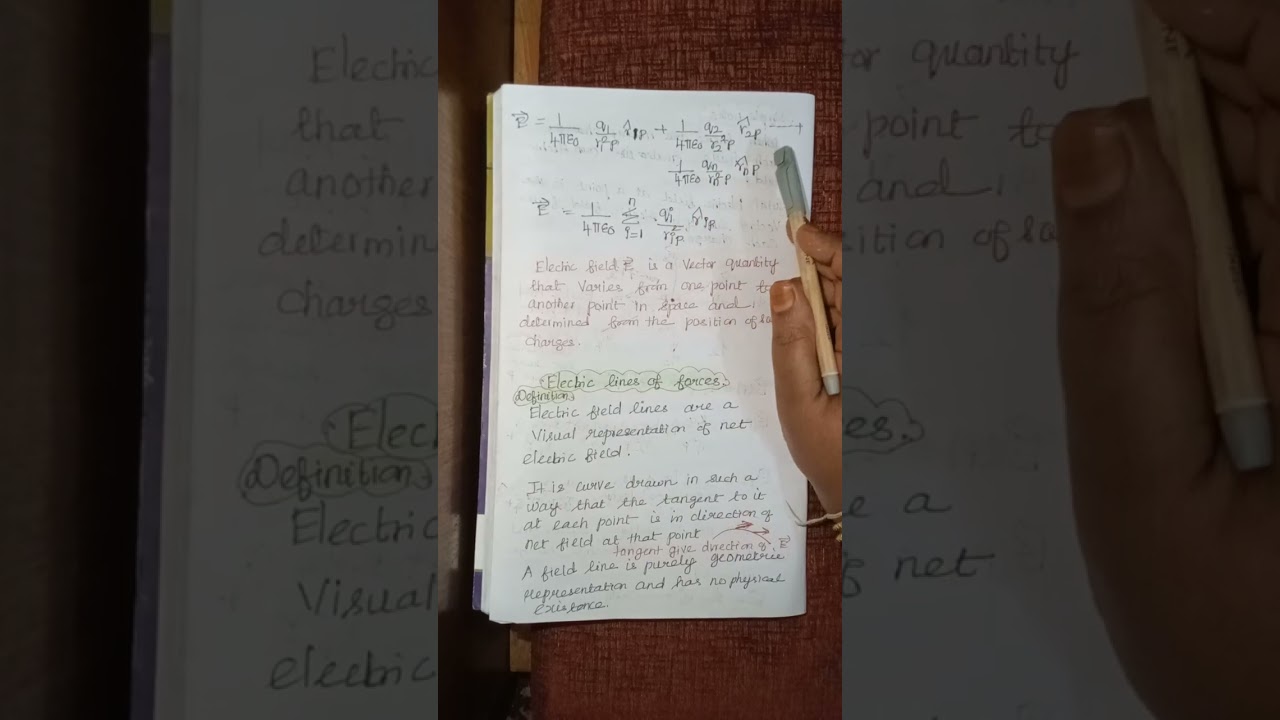 E⃗ = 1/4πε₀ q₁/r₁²p r̂₁p + 1/4πε₀ q₂/r₂²p r̂₂p ----+
1/4πε₀ qₙ/rₙ²p r̂ₙp
E⃗ = 1/4πε₀ Σ i=1 n qᵢ/rᵢ²p r̂ᵢp
Electric field E⃗ is a Vector quantity
that varies from one point to
another point in space and,
determined from the position of
charges.
Electric lines of forces.
Definition
Electric field lines are a
Visual representation of net
electric field.
It is curve drawn in such a
way that the tangent to it
at each point is in direction of
net field at that point
tangent give direction of E⃗
A field line is purely geometric
representation and has no physical
existence.